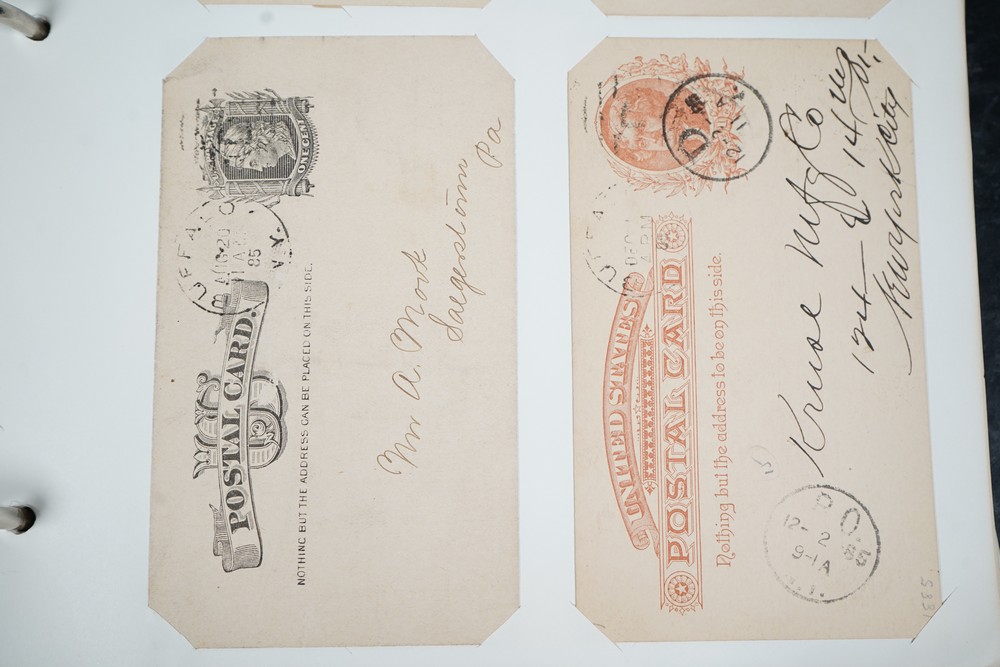 ONE CENT
U S
POSTAL CARD.
NOTHING BUT THE ADDRESS CAN BE PLACED ON THIS SIDE.
AUG 20
85
N.Y.
Mr A. Mook
Saegerstown
Pa
UNITED STATES
POSTAL CARD
Nothing but the address to be on this side.
DEC 1
85
D
Kruse Mfg Co
124 E 14th St.
New York City
P.O.
12-2
85
9-1A
N.Y.
1885